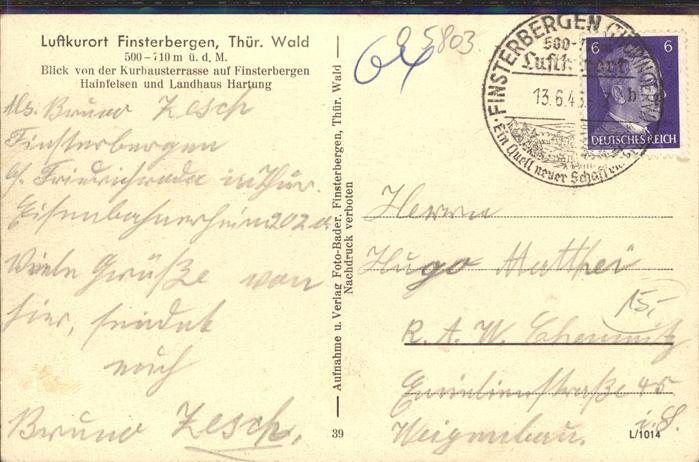 Luftkurort Finsterbergen, Thür. Wald
500–710 m ü. d. M.
Blick von der Kurhausterrasse auf Finsterbergen
Hainfelsen und Landhaus Hartung
Abs. Bruno Zesch
Finsterbergen
b/ Friedrichroda in Thür.
Eisenbahnerheim 202a
Viele Grüße von
hier, sendet
euch
Bruno Zesch.
Aufnahme u. Verlag Foto-Bader, Finsterbergen, Thür. Wald
Nachdruck verboten
39
95803
FINSTERBERGEN (THÜRINGERW)
500-7
Luftkurort
13.6.43
b
Ein Quell neuer Schaffens
6 6
DEUTSCHES REICH
Herrn
Hugo Matthei
15,-
R. A. W. Chemnitz
Emilienstraße 45
i. S.
L/1014